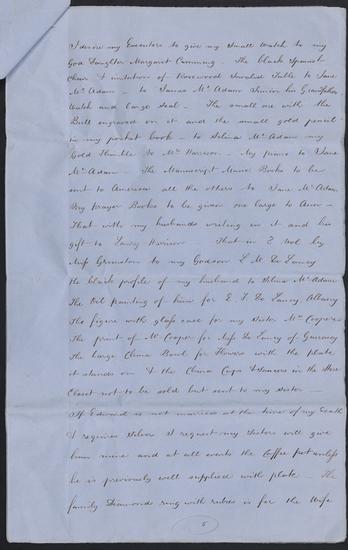 I desire my Executors to give my small Watch to my
God Daughter Margaret Cumming - The black Spanish
Chair & imitation of Rosewood Invalid Table to Jane
McAdam - to James McAdam Junior his Grandfathers
Watch and large Seal - The small one with the
Bull engraved on it and the small gold pencil
in my pocket book - to Selina McAdam my
Gold Thimble to Mrs Harrison - My piano to Jane
McAdam - The Manuscript Music Books to be
sent to America all the others to Jane McAdam
My prayer Books to be given one large to Ann -
That with my husbands writing in it and his
gift to Harrison - That in 2 Vol by
Miss Grimston to my Godson E M De Lancy
The black profile of my husband to Selina McAdam
The Oil painting of him for E. F. De Lancy, Albany
The figure with glass case for my sister Mrs Cooper
The print of Mr Cooper for Miss De Lancy of Guernsey
The large China Bowl for Flowers with the plate
it stands on & the China Cups & Saucers in the Store
Closet not to be sold but sent to my sister -
If Edward is not married at the time of my death
& requires Silver I request my Sisters will give
him mine and at all events the Coffee pot unless
he is previously well supplied with plate - The
family Diamonds ring with rubies is for the Wife
5